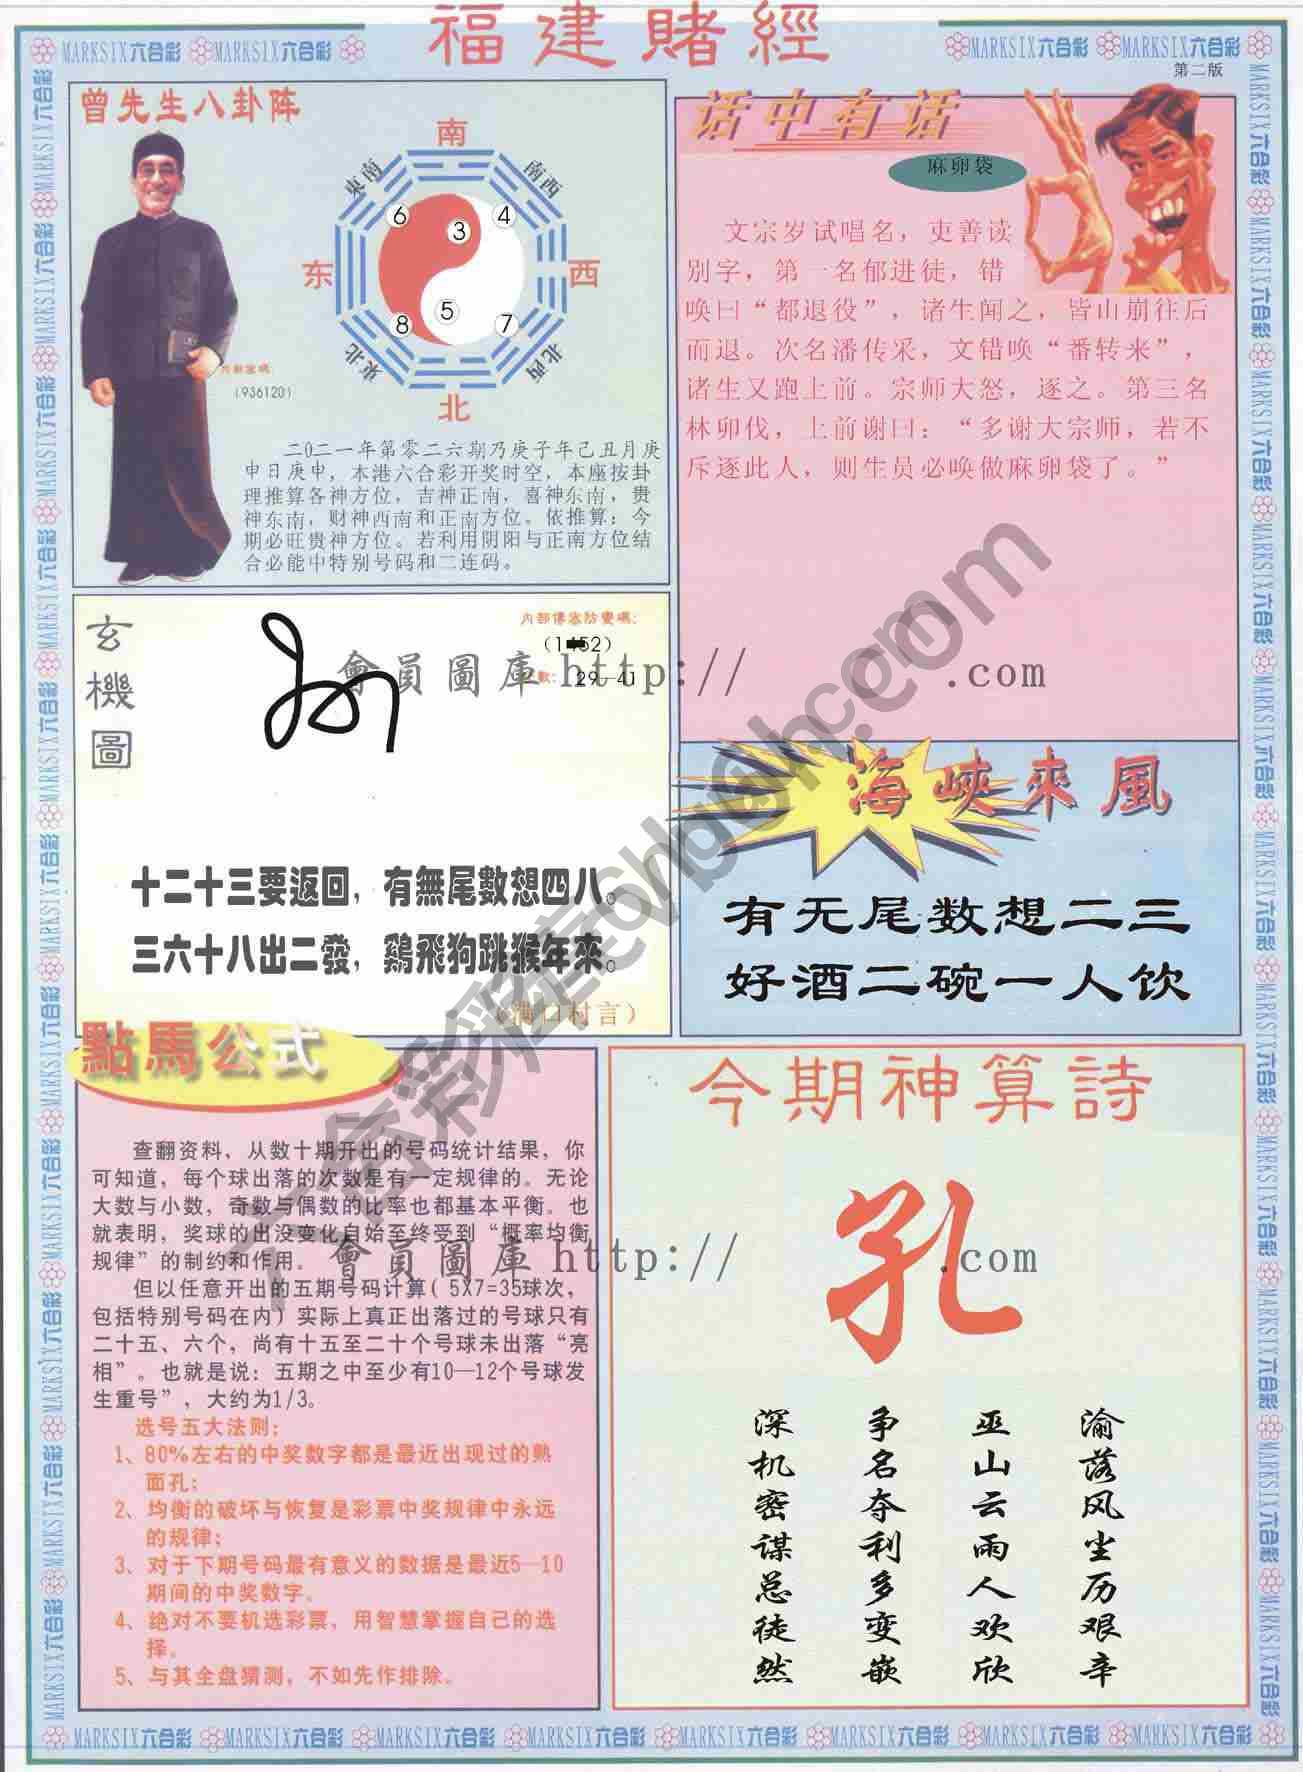 福建賭經
MARKSIX六合彩 MARKSIX六合彩
MARKSIX六合彩 MARKSIX六合彩
第二版
曾先生八卦阵
南
東南
南西
6
3
4
东
西
5
8
7
東北
北西
北
(936120)
二〇二一年第零二六期乃庚子年己丑月庚
申日庚申，本港六合彩开奖时空，本座按卦
理推算各神方位，吉神正南，喜神东南，贵
神东南，财神西南和正南方位。依推算：今
期必旺贵神方位。若利用阴阳与正南方位结
合必能中特别号码和二连码。
话中有话
麻卵袋
文宗岁试唱名，吏善读
别字，第一名郁进徒，错
唤曰“都退役”，诸生闻之，皆山崩往后
而退。次名潘传采，文错唤“番转来”，
诸生又跑上前。宗师大怒，逐之。第三名
林卯伐，上前谢曰：“多谢大宗师，若不
斥逐此人，则生员必唤做麻卵袋了。”
玄機圖
29—41
會員圖庫 http:// .com
十二十三要返回，有無尾數想四八。
三六十八出二發，鷄飛狗跳猴年來。
（满口村言）
海峽來風
有无尾数想二三
好酒二碗一人饮
點馬公式
查翻资料，从数十期开出的号码统计结果，你
可知道，每个球出落的次数是有一定规律的。无论
大数与小数，奇数与偶数的比率也都基本平衡。也
就表明，奖球的出没变化自始至终受到“概率均衡
规律”的制约和作用。
但以任意开出的五期号码计算（5X7=35球次，
包括特别号码在内）实际上真正出落过的号球只有
二十五、六个，尚有十五至二十个号球未出落“亮
相”。也就是说：五期之中至少有10—12个号球发
生重号”，大约为1/3。
选号五大法则：
1、80%左右的中奖数字都是最近出现过的熟
面孔；
2、均衡的破坏与恢复是彩票中奖规律中永远
的规律；
3、对于下期号码最有意义的数据是最近5—10
期间的中奖数字。
4、绝对不要机选彩票，用智慧掌握自己的选
择。
5、与其全盘猜测，不如先作排除。
會員圖庫 http:// .com
今期神算詩
孔
渝落风尘历艰辛
巫山云雨人欢欣
争名夺利多变嵌
深机密谋总徒然
MARKSIX六合彩 MARKSIX六合彩 MARKSIX六合彩 MARKSIX六合彩 MARKSIX六合彩 MARKSIX六合彩 MARKSIX六合彩 MARKSIX六合彩